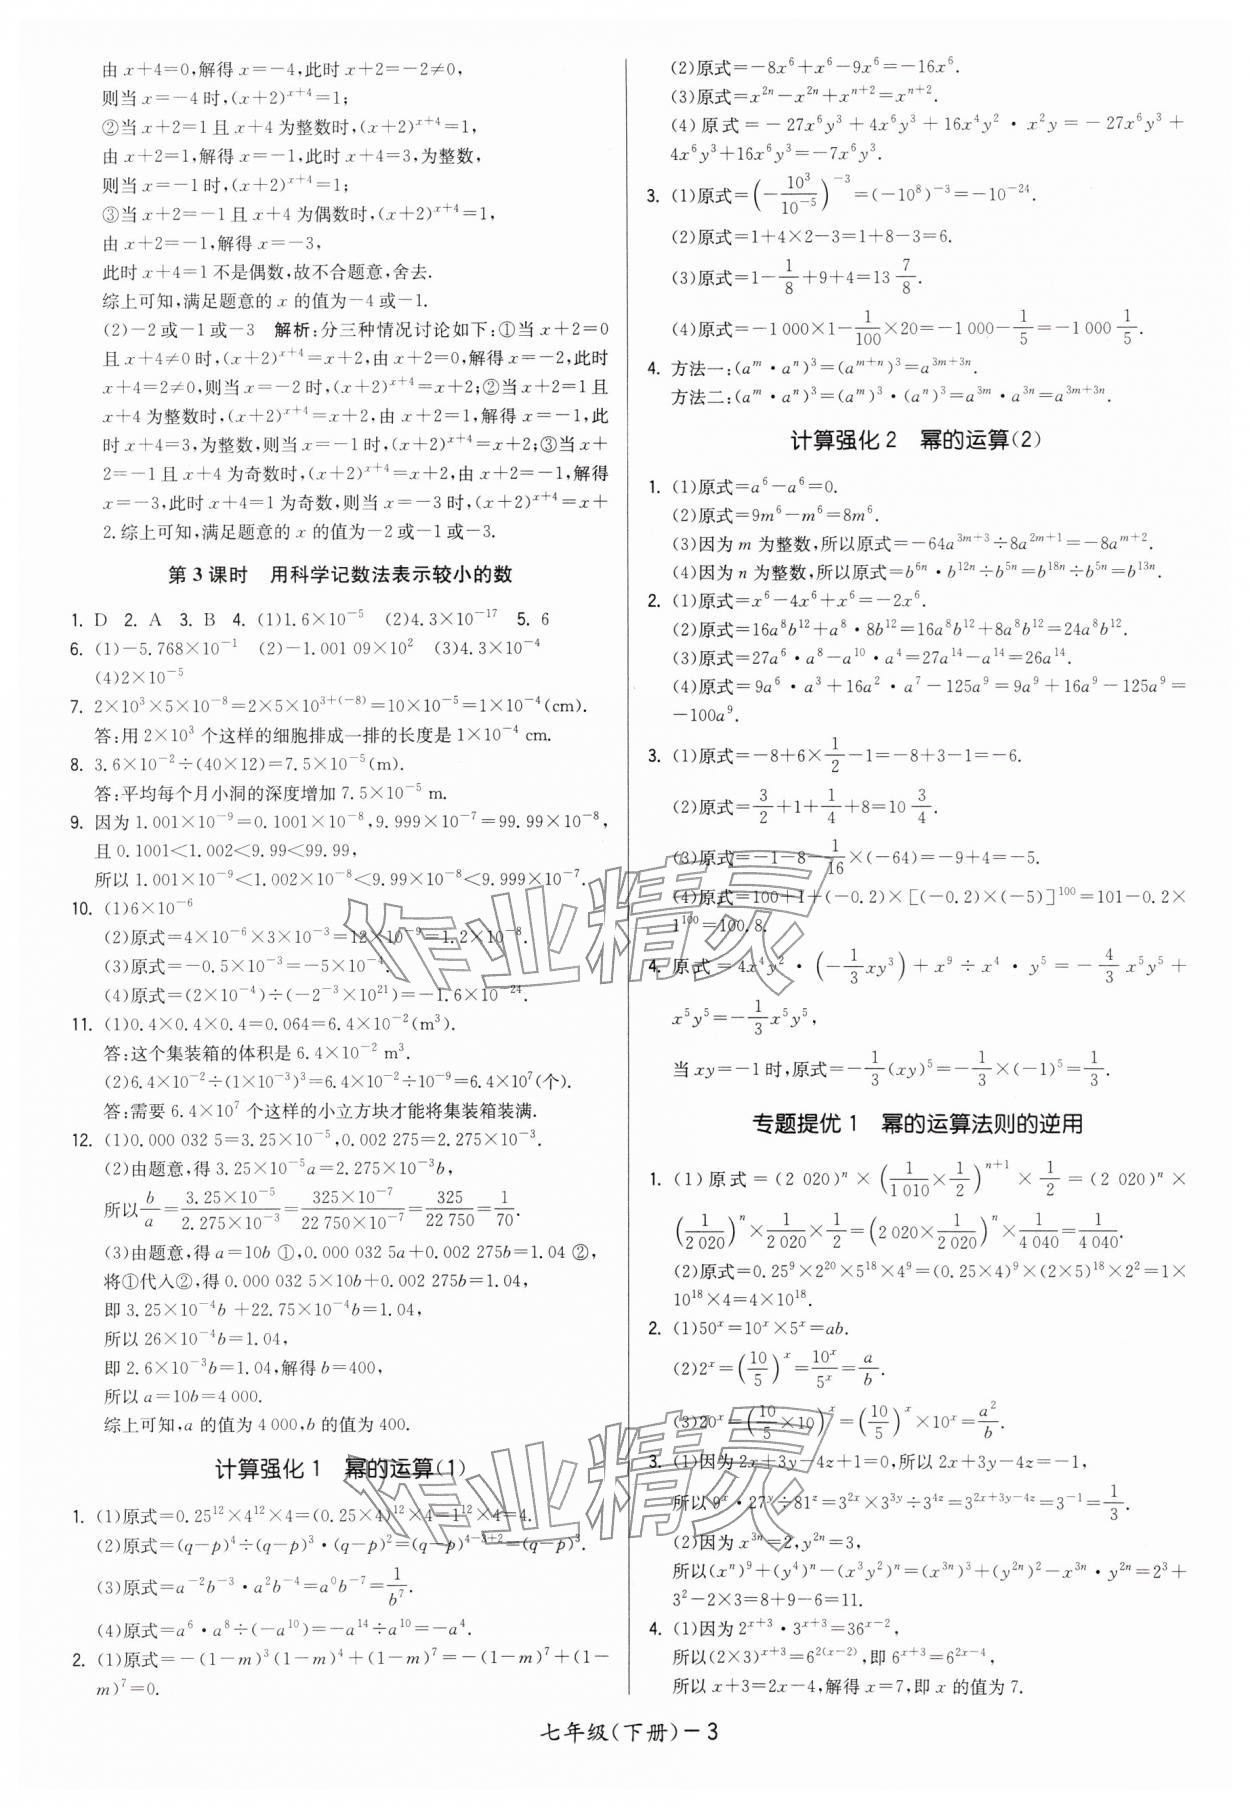 由 x+4=0,解得 x=-4,此时 x+2=-2≠0,
则当 x=-4 时,(x+2)^{x+4}=1;
②当 x+2=1 且 x+4 为整数时,(x+2)^{x+4}=1,
由 x+2=1,解得 x=-1,此时 x+4=3,为整数,
则当 x=-1 时,(x+2)^{x+4}=1;
③当 x+2=-1 且 x+4 为偶数时,(x+2)^{x+4}=1,
由 x+2=-1,解得 x=-3,
此时 x+4=1 不是偶数,故不合题意,舍去.
综上可知,满足题意的 x 的值为-4 或-1.
(2)-2 或-1 或-3 解析:分三种情况讨论如下:①当 x+2=0
且 x+4≠0 时,(x+2)^{x+4}=x+2,由 x+2=0,解得 x=-2,此时
x+4=2≠0,则当 x=-2 时,(x+2)^{x+4}=x+2;②当 x+2=1 且
x+4 为整数时,(x+2)^{x+4}=x+2,由 x+2=1,解得 x=-1,此
时 x+4=3,为整数,则当 x=-1 时,(x+2)^{x+4}=x+2;③当 x+
2=-1 且 x+4 为奇数时,(x+2)^{x+4}=x+2,由 x+2=-1,解得
x=-3,此时 x+4=1 为奇数,则当 x=-3 时,(x+2)^{x+4}=x+
2.综上可知,满足题意的 x 的值为-2 或-1 或-3.
第 3 课时 用科学记数法表示较小的数
1. D 2. A 3. B 4. (1)1.6×10^{-5} (2)4.3×10^{-17} 5. 6
6. (1)-5.768×10^{-1} (2)-1.001 09×10^2 (3)4.3×10^{-4}
(4)2×10^{-5}
7. 2×10^3×5×10^{-8}=2×5×10^{3+(-8)}=10×10^{-5}=1×10^{-4}(cm).
答:用 2×10^3 个这样的细胞排成一排的长度是 1×10^{-4} cm.
8. 3.6×10^{-2}÷(40×12)=7.5×10^{-5}(m).
答:平均每个月小洞的深度增加 7.5×10^{-5} m.
9. 因为 1.001×10^{-9}=0.1001×10^{-8},9.999×10^{-7}=99.99×10^{-8},
且 0.1001<1.002<9.99<99.99,
所以 1.001×10^{-9}<1.002×10^{-8}<9.99×10^{-8}<9.999×10^{-7}.
10. (1)6×10^{-6}
(2)原式=4×10^{-6}×3×10^{-3}=12×10^{-9}=1.2×10^{-8}.
(3)原式=-0.5×10^{-3}=-5×10^{-4}.
(4)原式=(2×10^{-4})÷(-2^{-3}×10^{21})=-1.6×10^{-24}.
11. (1)0.4×0.4×0.4=0.064=6.4×10^{-2}(m^3).
答:这个集装箱的体积是 6.4×10^{-2} m^3.
(2)6.4×10^{-2}÷(1×10^{-3})^3=6.4×10^{-2}÷10^{-9}=6.4×10^7(个).
答:需要 6.4×10^7 个这样的小立方块才能将集装箱装满.
12. (1)0.000 032 5=3.25×10^{-5},0.002 275=2.275×10^{-3}.
(2)由题意,得 3.25×10^{-5}a=2.275×10^{-3}b,
所以 b/a=3.25×10^{-5}/2.275×10^{-3}=325×10^{-7}/22 750×10^{-7}=325/22 750=1/70.
(3)由题意,得 a=10b ①,0.000 032 5a+0.002 275b=1.04 ②,
将①代入②,得 0.000 032 5×10b+0.002 275b=1.04,
即 3.25×10^{-4}b +22.75×10^{-4}b=1.04,
所以 26×10^{-4}b=1.04,
即 2.6×10^{-3}b=1.04,解得 b=400,
所以 a=10b=4 000.
综上可知,a 的值为 4 000,b 的值为 400.
计算强化 1 幂的运算(1)
1. (1)原式=0.25^{12}×4^{12}×4=(0.25×4)^{12}×4=1^{12}×4=4.
(2)原式=(q-p)^4÷(q-p)^3·(q-p)^2=(q-p)^{4-3+2}=(q-p)^3.
(3)原式=a^{-2}b^{-3}·a^2b^{-4}=a^0b^{-7}=1/b^7.
(4)原式=a^6·a^8÷(-a^{10})=-a^{14}÷a^{10}=-a^4.
2. (1)原式=-(1-m)^3(1-m)^4+(1-m)^7=-(1-m)^7+(1-
m)^7=0.
(2)原式=-8x^6+x^6-9x^6=-16x^6.
(3)原式=x^{2n}-x^{2n}+x^{n+2}=x^{n+2}.
(4)原式=-27x^6y^3+4x^6y^3+16x^4y^2·x^2y=-27x^6y^3+
4x^6y^3+16x^6y^3=-7x^6y^3.
3. (1)原式=(-10^3/10^{-5})^{-3}=(-10^8)^{-3}=-10^{-24}.
(2)原式=1+4×2-3=1+8-3=6.
(3)原式=1-1/8+9+4=13 7/8.
(4)原式=-1 000×1-1/100×20=-1 000-1/5=-1 000 1/5.
4. 方法一:(a^m·a^n)^3=(a^{m+n})^3=a^{3m+3n}.
方法二:(a^m·a^n)^3=(a^m)^3·(a^n)^3=a^{3m}·a^{3n}=a^{3m+3n}.
计算强化 2 幂的运算(2)
1. (1)原式=a^6-a^6=0.
(2)原式=9m^6-m^6=8m^6.
(3)因为 m 为整数,所以原式=-64a^{3m+3}÷8a^{2m+1}=-8a^{m+2}.
(4)因为 n 为整数,所以原式=b^{6n}·b^{12n}÷b^{5n}=b^{18n}÷b^{5n}=b^{13n}.
2. (1)原式=x^6-4x^6+x^6=-2x^6.
(2)原式=16a^8b^{12}+a^8·8b^{12}=16a^8b^{12}+8a^8b^{12}=24a^8b^{12}.
(3)原式=27a^6·a^8-a^{10}·a^4=27a^{14}-a^{14}=26a^{14}.
(4)原式=9a^6·a^3+16a^2·a^7-125a^9=9a^9+16a^9-125a^9=
-100a^9.
3. (1)原式=-8+6×1/2-1=-8+3-1=-6.
(2)原式=3/2+1+1/4+8=10 3/4.
(3)原式=-1-8-1/16×(-64)=-9+4=-5.
(4)原式=100+1+(-0.2)×[(-0.2)×(-5)]^{100}=101-0.2×
1^{100}=100.8.
4. 原式=4x^4y^2·(-1/3xy^3)+x^9÷x^4·y^5=-4/3x^5y^5+
x^5y^5=-1/3x^5y^5,
当 xy=-1 时,原式=-1/3(xy)^5=-1/3×(-1)^5=1/3.
专题提优 1 幂的运算法则的逆用
1. (1)原式=(2 020)^n×(1/1 010×1/2)^{n+1}×1/2=(2 020)^n×
(1/2 020)^n×1/2 020×1/2=(2 020×1/2 020)^n×1/4 040=1/4 040.
(2)原式=0.25^9×2^{20}×5^{18}×4^9=(0.25×4)^9×(2×5)^{18}×2^2=1×
10^{18}×4=4×10^{18}.
2. (1)50^x=10^x×5^x=ab.
(2)2^x=(10/5)^x=10^x/5^x=a/b.
(3)20^x=(10/5×10)^x=(10/5)^x×10^x=a^2/b.
3. (1)因为 2x+3y-4z+1=0,所以 2x+3y-4z=-1,
所以 9^x·27^y÷81^z=3^{2x}×3^{3y}÷3^{4z}=3^{2x+3y-4z}=3^{-1}=1/3.
(2)因为 x^{3n}=2,y^{2n}=3,
所以(x^n)^9+(y^4)^n-(x^3y^2)^n=(x^{3n})^3+(y^{2n})^2-x^{3n}·y^{2n}=2^3+
3^2-2×3=8+9-6=11.
4. (1)因为 2^{x+3}·3^{x+3}=36^{x-2},
所以(2×3)^{x+3}=6^{2(x-2)},即 6^{x+3}=6^{2x-4},
所以 x+3=2x-4,解得 x=7,即 x 的值为 7.
七年级(下册)-3
作业精灵
作业精灵